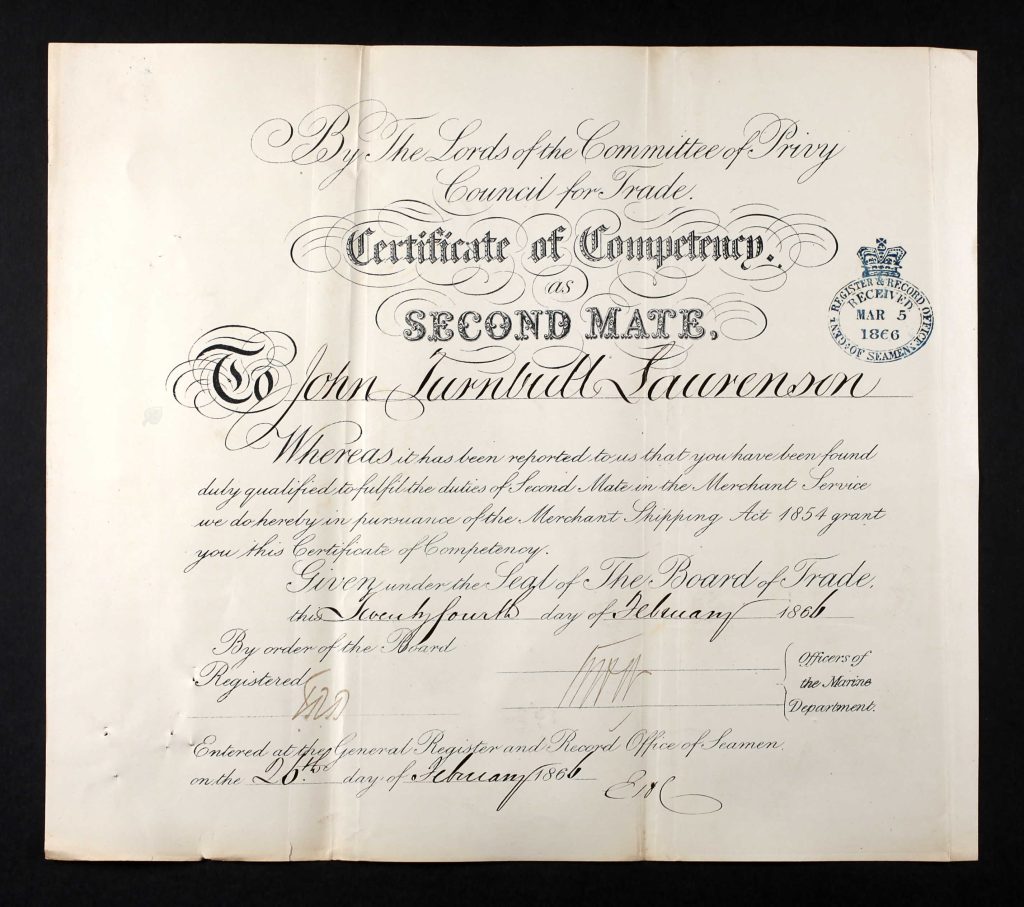 By The Lords of the Committee of Privy
Council for Trade.
Certificate of Competency.
as
SECOND MATE,
To John Turnbull Laurenson
REGISTER & RECORD OFFICE
RECEIVED
MAR 5
1866
GENL OF SEAMEN
Whereas it has been reported to us that you have been found
duly qualified to fulfil the duties of Second Mate in the Merchant Service
we do hereby in pursuance of the Merchant Shipping Act 1854 grant
you this Certificate of Competency.
Given under the Seal of The Board of Trade.
this Twenty fourth day of February 1866
By order of the Board
Registered
Officers of
the Marine
Department.
Entered at the General Register and Record Office of Seamen.
on the 26th day of February 1866